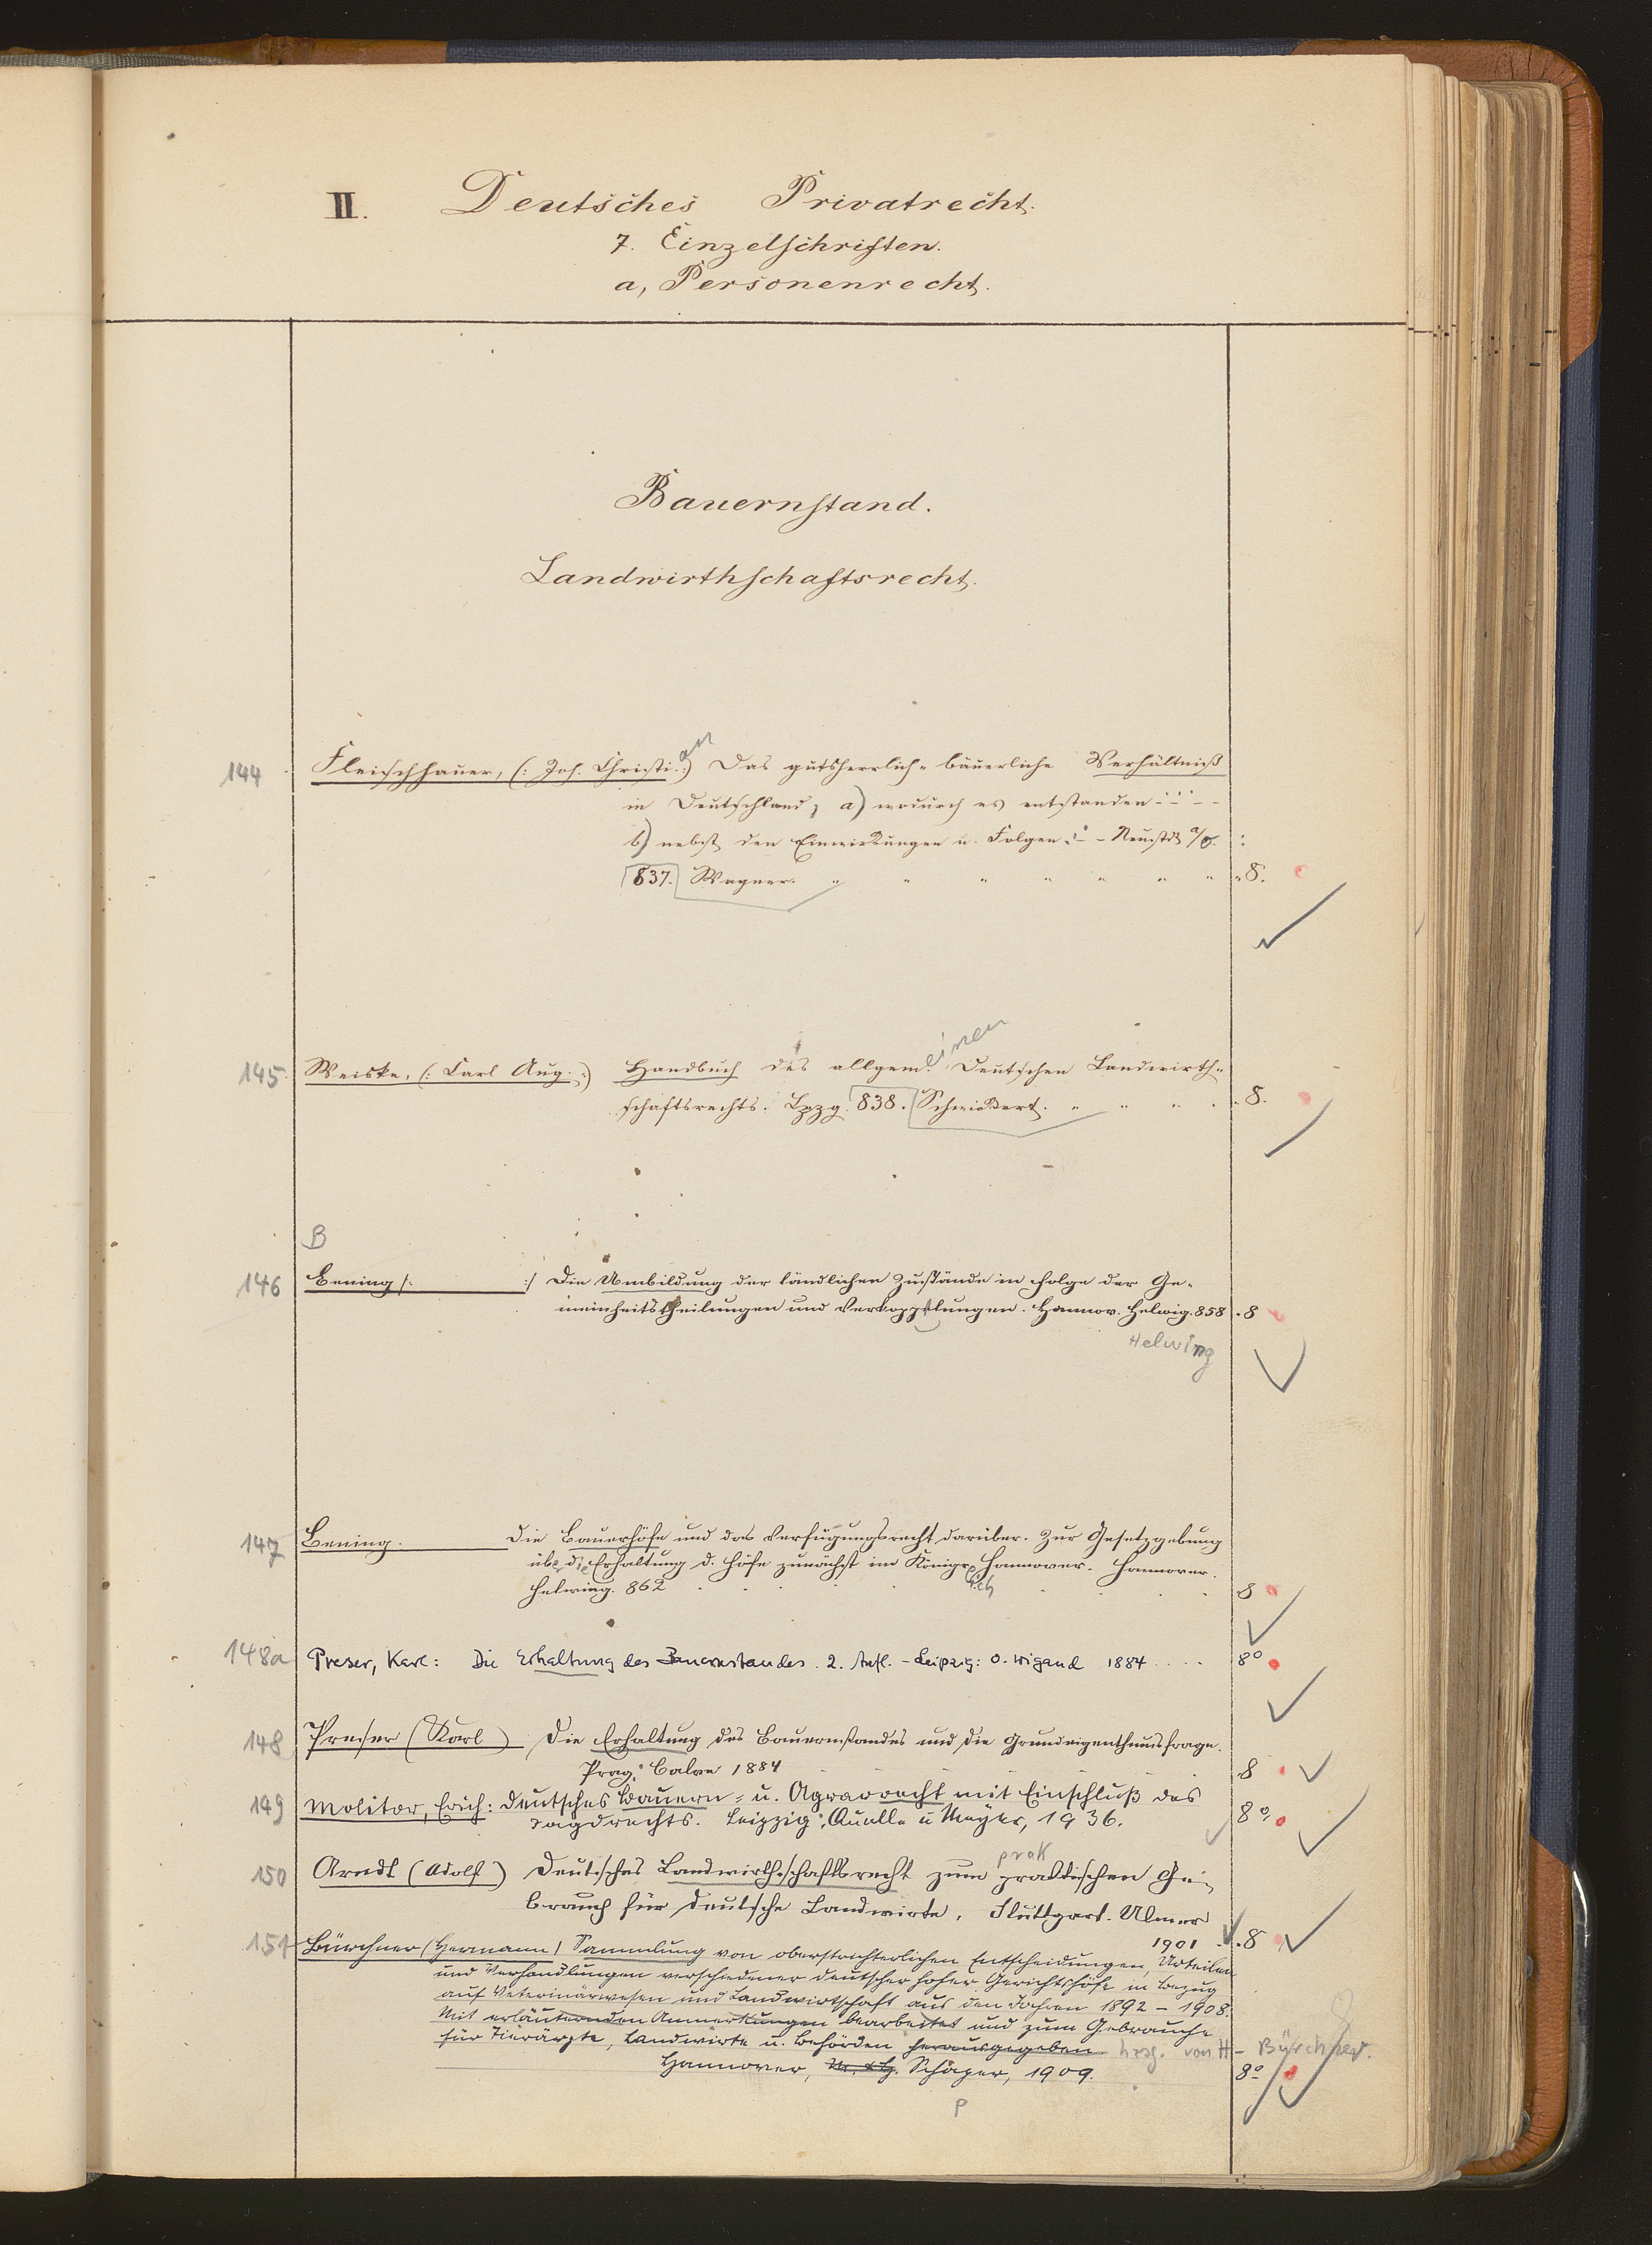 II. Deutsches Privatrecht.
7. Einzelschriften.
a, Personenrecht.
Bauernstand.
Landwirthschaftsrecht.
144 Fleischhauer, (: Joh. Christi. :) an Das gutsherrlich-bäuerliche Verhältniß
in Deutschland, a) wodurch es entstanden
b) nebst den Einwirkungen u. Folgen. Neustdt a/O. :
837. Wagner. " " " " " " " " 8.
145. Weiske, (: Carl Aug. :) Handbuch des allgem. einen Deutschen Landwirth-
schaftsrechts. Lpzg. 838. Schwickert. " " " . 8.
B
146 Bening /: :/ Die Umbildung der ländlichen Zustände in Folge der Ge-
meinheitstheilungen und Verkoppelungen. Hannov. Helwig. 858 . 8
Helwing
147 Bening. Die Bauerhöfe und das Verfügungsrecht darüber. Zur Gesetzgebung
über die Erhaltung d. Höfe zunächst im Königreich Hannover. Hannover.
Helwing. 862 . . . . . . 8
148a Preser, Karl: Die Erhaltung des Bauernstandes. 2. Aufl. - Leipzig: O. Wigand 1884 . . . . 8°
148 Preser (Karl) Die Erhaltung des Bauernstandes und die Grundeigenthumsfrage.
Prag: Calve 1884 8
149 Molitor, Erich: Deutsches Bauern- u. Agrarrecht mit Einschluß des
Jagdrechts. Leipzig: Quelle u Meyer, 1936. 8°
prak
150 Arndt (Adolf) Deutsches Landwirthschaftsrecht zum praktischen Ge-
brauch für deutsche Landwirte. Stuttgart. Ulmer
1901 . 8
151 Bürchner (Hermann) Sammlung von oberstrichterlichen Entscheidungen, Urteilen
und Verhandlungen verschiedener deutscher hoher Gerichtshöfe in Bezug
auf Veterinärwesen und Landwirtschaft aus den Jahren 1892 - 1908.
Mit erläuternden Anmerkungen bearbeitet und zum Gebrauche
für Tierärzte, Landwirte u. Behörden herausgegeben hrsg. von H. Bürchner.
Hannover, M. & H. Schaper, 1909. 8°
P